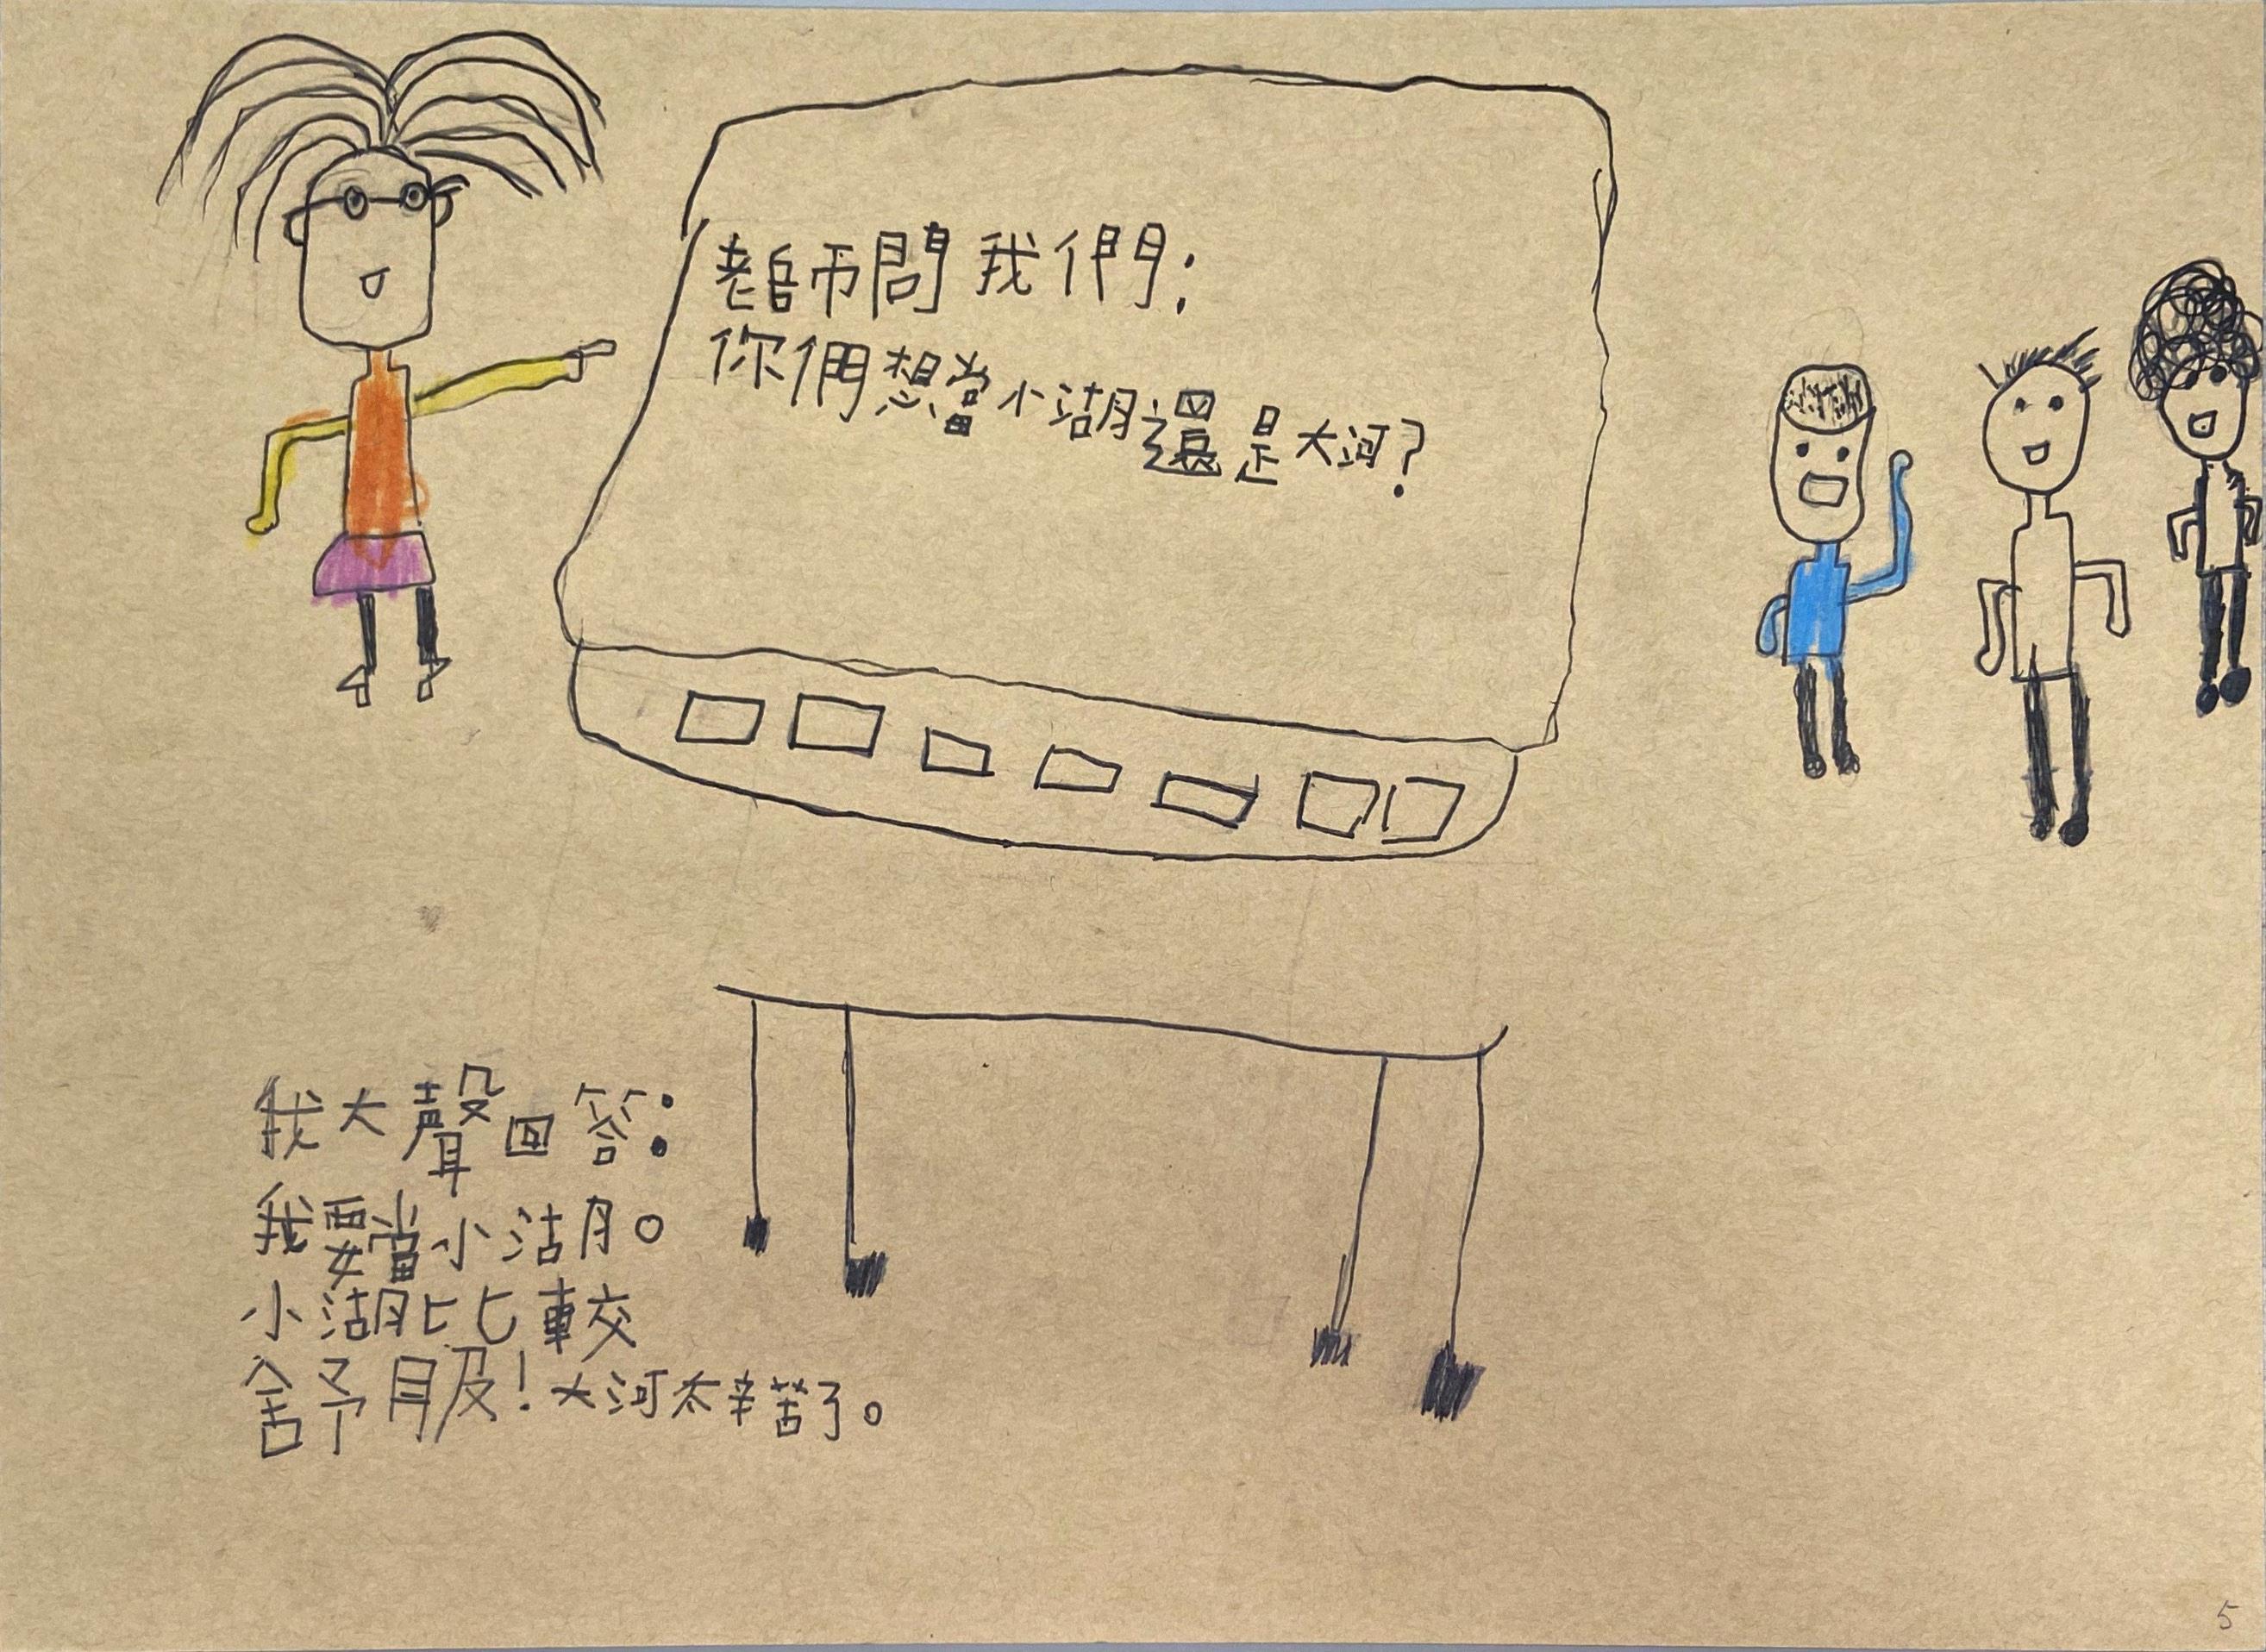 老師問我們：
你們想當小湖還是大河？
我大聲回答：
我要當小湖。
小湖比較
舒服！大河太辛苦了。
5